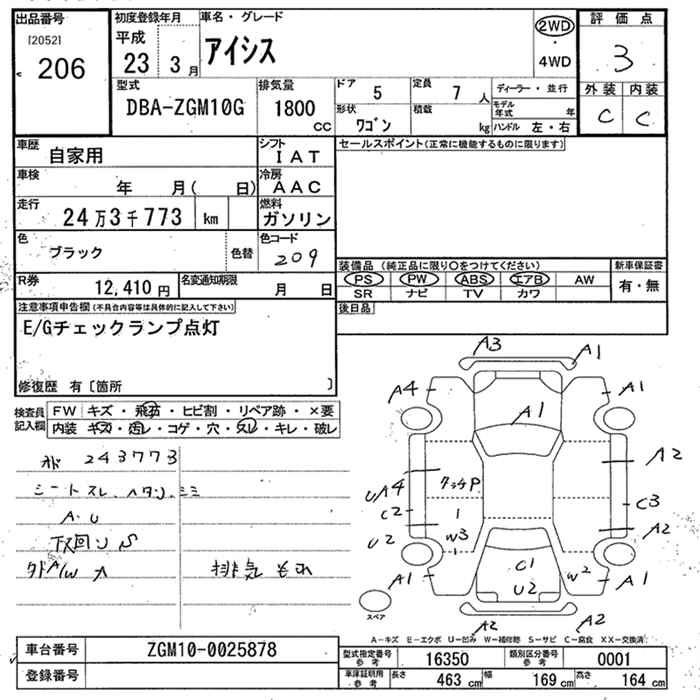 出品番号
[2052]
206
初度登録年月
平成
23 3 月
車名・グレード
アイシス
2WD
・
4WD
評価点
3
外装 内装
C C
型式
DBA-ZGM10G
排気量
1800
CC
ドア 5
定員 7 人
形状
ワゴン
積載
kg
ディーラー・並行
モデル年式 年
ハンドル 左・右
車歴
自家用
シフト
IAT
車検
年 月( 日)
冷房
AAC
走行
24万3千773 km
燃料
ガソリン
色
ブラック
色替
色コード
209
R券
12,410円
名変通知期限
月 日
セールスポイント(正常に機能するものに限ります)
装備品(純正品に限り○をつけてください)
PS PW ABS エアB AW
SR ナビ TV カワ
新車保証書
有・無
後日品
注意事項申告欄(不具合内容等は具体的に記入して下さい)
E/Gチェックランプ点灯
修復歴 有〔箇所 〕
検査員
記入欄
FW キズ・飛石・ヒビ割・リペア跡・×要
内装 キズ・汚レ・コゲ・穴・スレ・キレ・破レ
243773
シートスレ、
A・U
下回りS
排気もれ
A3
A1
A4
A1
A1
A2
UA4
P
C2
C3
1
U2
A2
W3
C1
W2
U2
A1
A1
A2
A2
スペア
A-キズ E-エクボ U-凹み W-補修跡 S-サビ C-腐食 XX-交換済
車台番号
ZGM10-0025878
登録番号
型式指定番号
参考
16350
類別区分番号
参考
0001
車庫証明用
参考
長さ 463 cm
幅 169 cm
高さ 164 cm